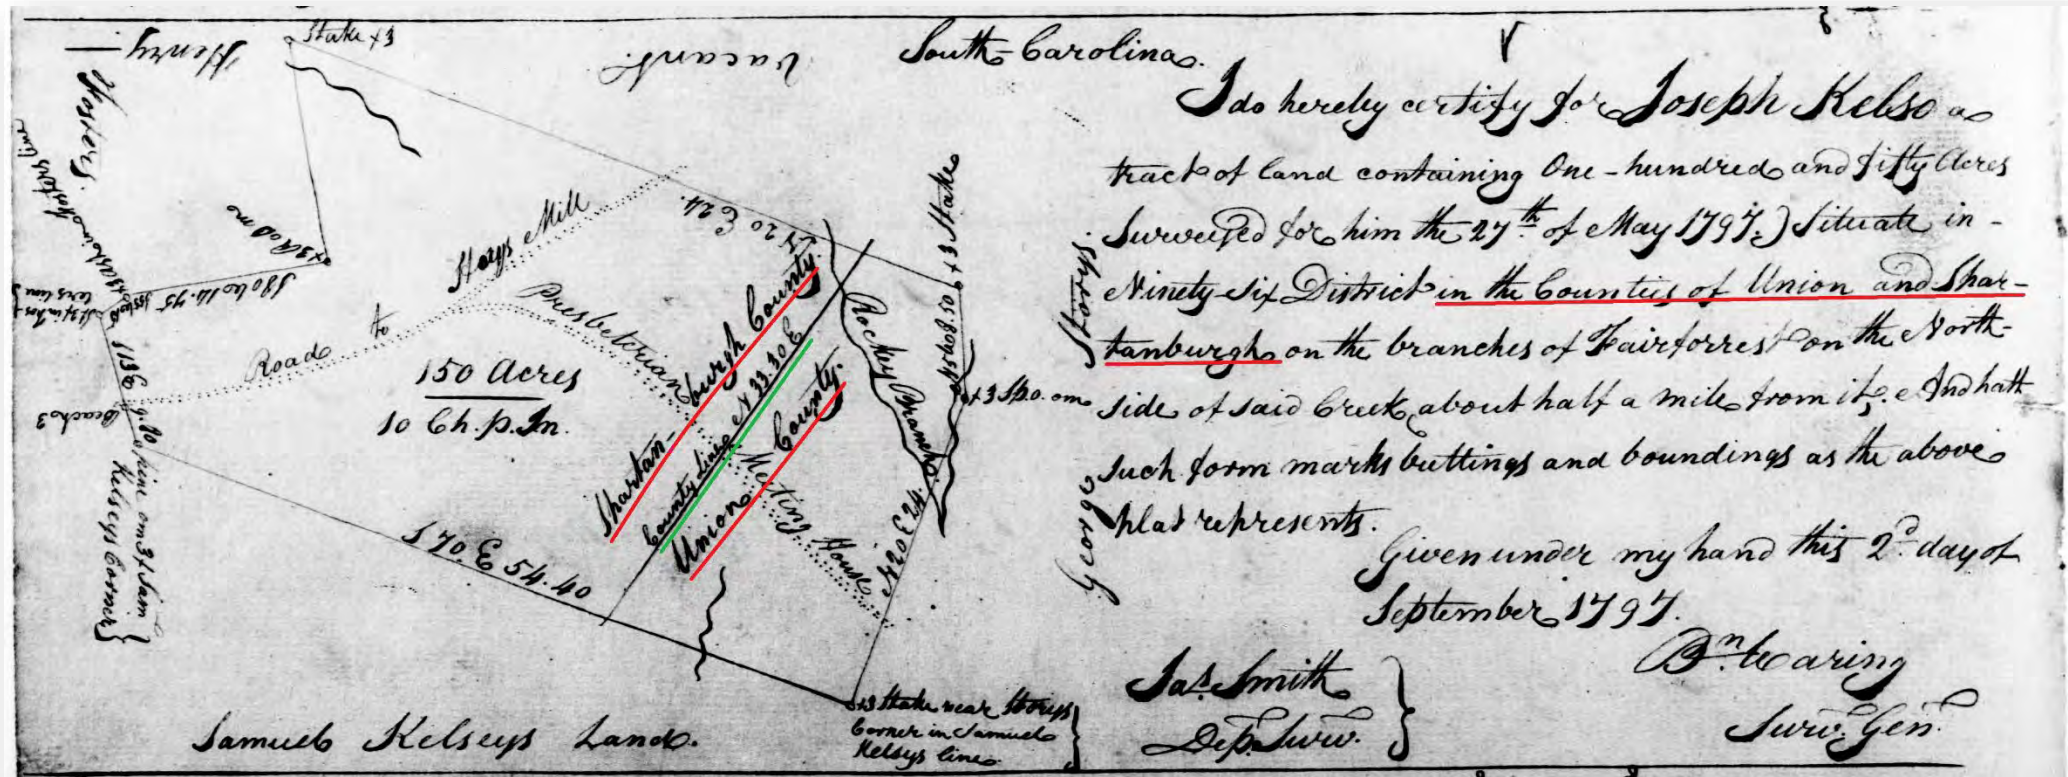 South-Carolina.
I do hereby certify for Joseph Kelso a
tract of land containing One-hundred and fifty Acres
Surveyed for him the 27th of May 1797.) Situate in-
Ninety-Six District in the Counties of Union and Spar-
tanburgh on the branches of Fairforrest on the North-
side of said Creek about half a mile from it; And hath
such form marks buttings and boundings as the above
plat represents.
Given under my hand this 2d day of
September 1797.
Bn. Waring
Surv. Gen.
Jas. Smith
Dep. Surv.
Stake x3
Henry
Vacant.
Fosters
Storys Mill
to
Road
Presbeterian
Meeting
House
150 Acres
10 Ch. p. In.
Spartan-
burgh County.
County Line N 33.30 E
Union County.
Rockey Branch
N 20 E 24.
x3 Stake
George Storys.
x3 R.O. om
S 80 W 14.75
Beach 3
S 13 E 9.90
pine om 3 f Sam
Kelseys Corner
S 70. E 54.40
N 20 E 24
x3 Stake near Storys
Corner in Samuel
Kelseys line
Samuel Kelseys Land.